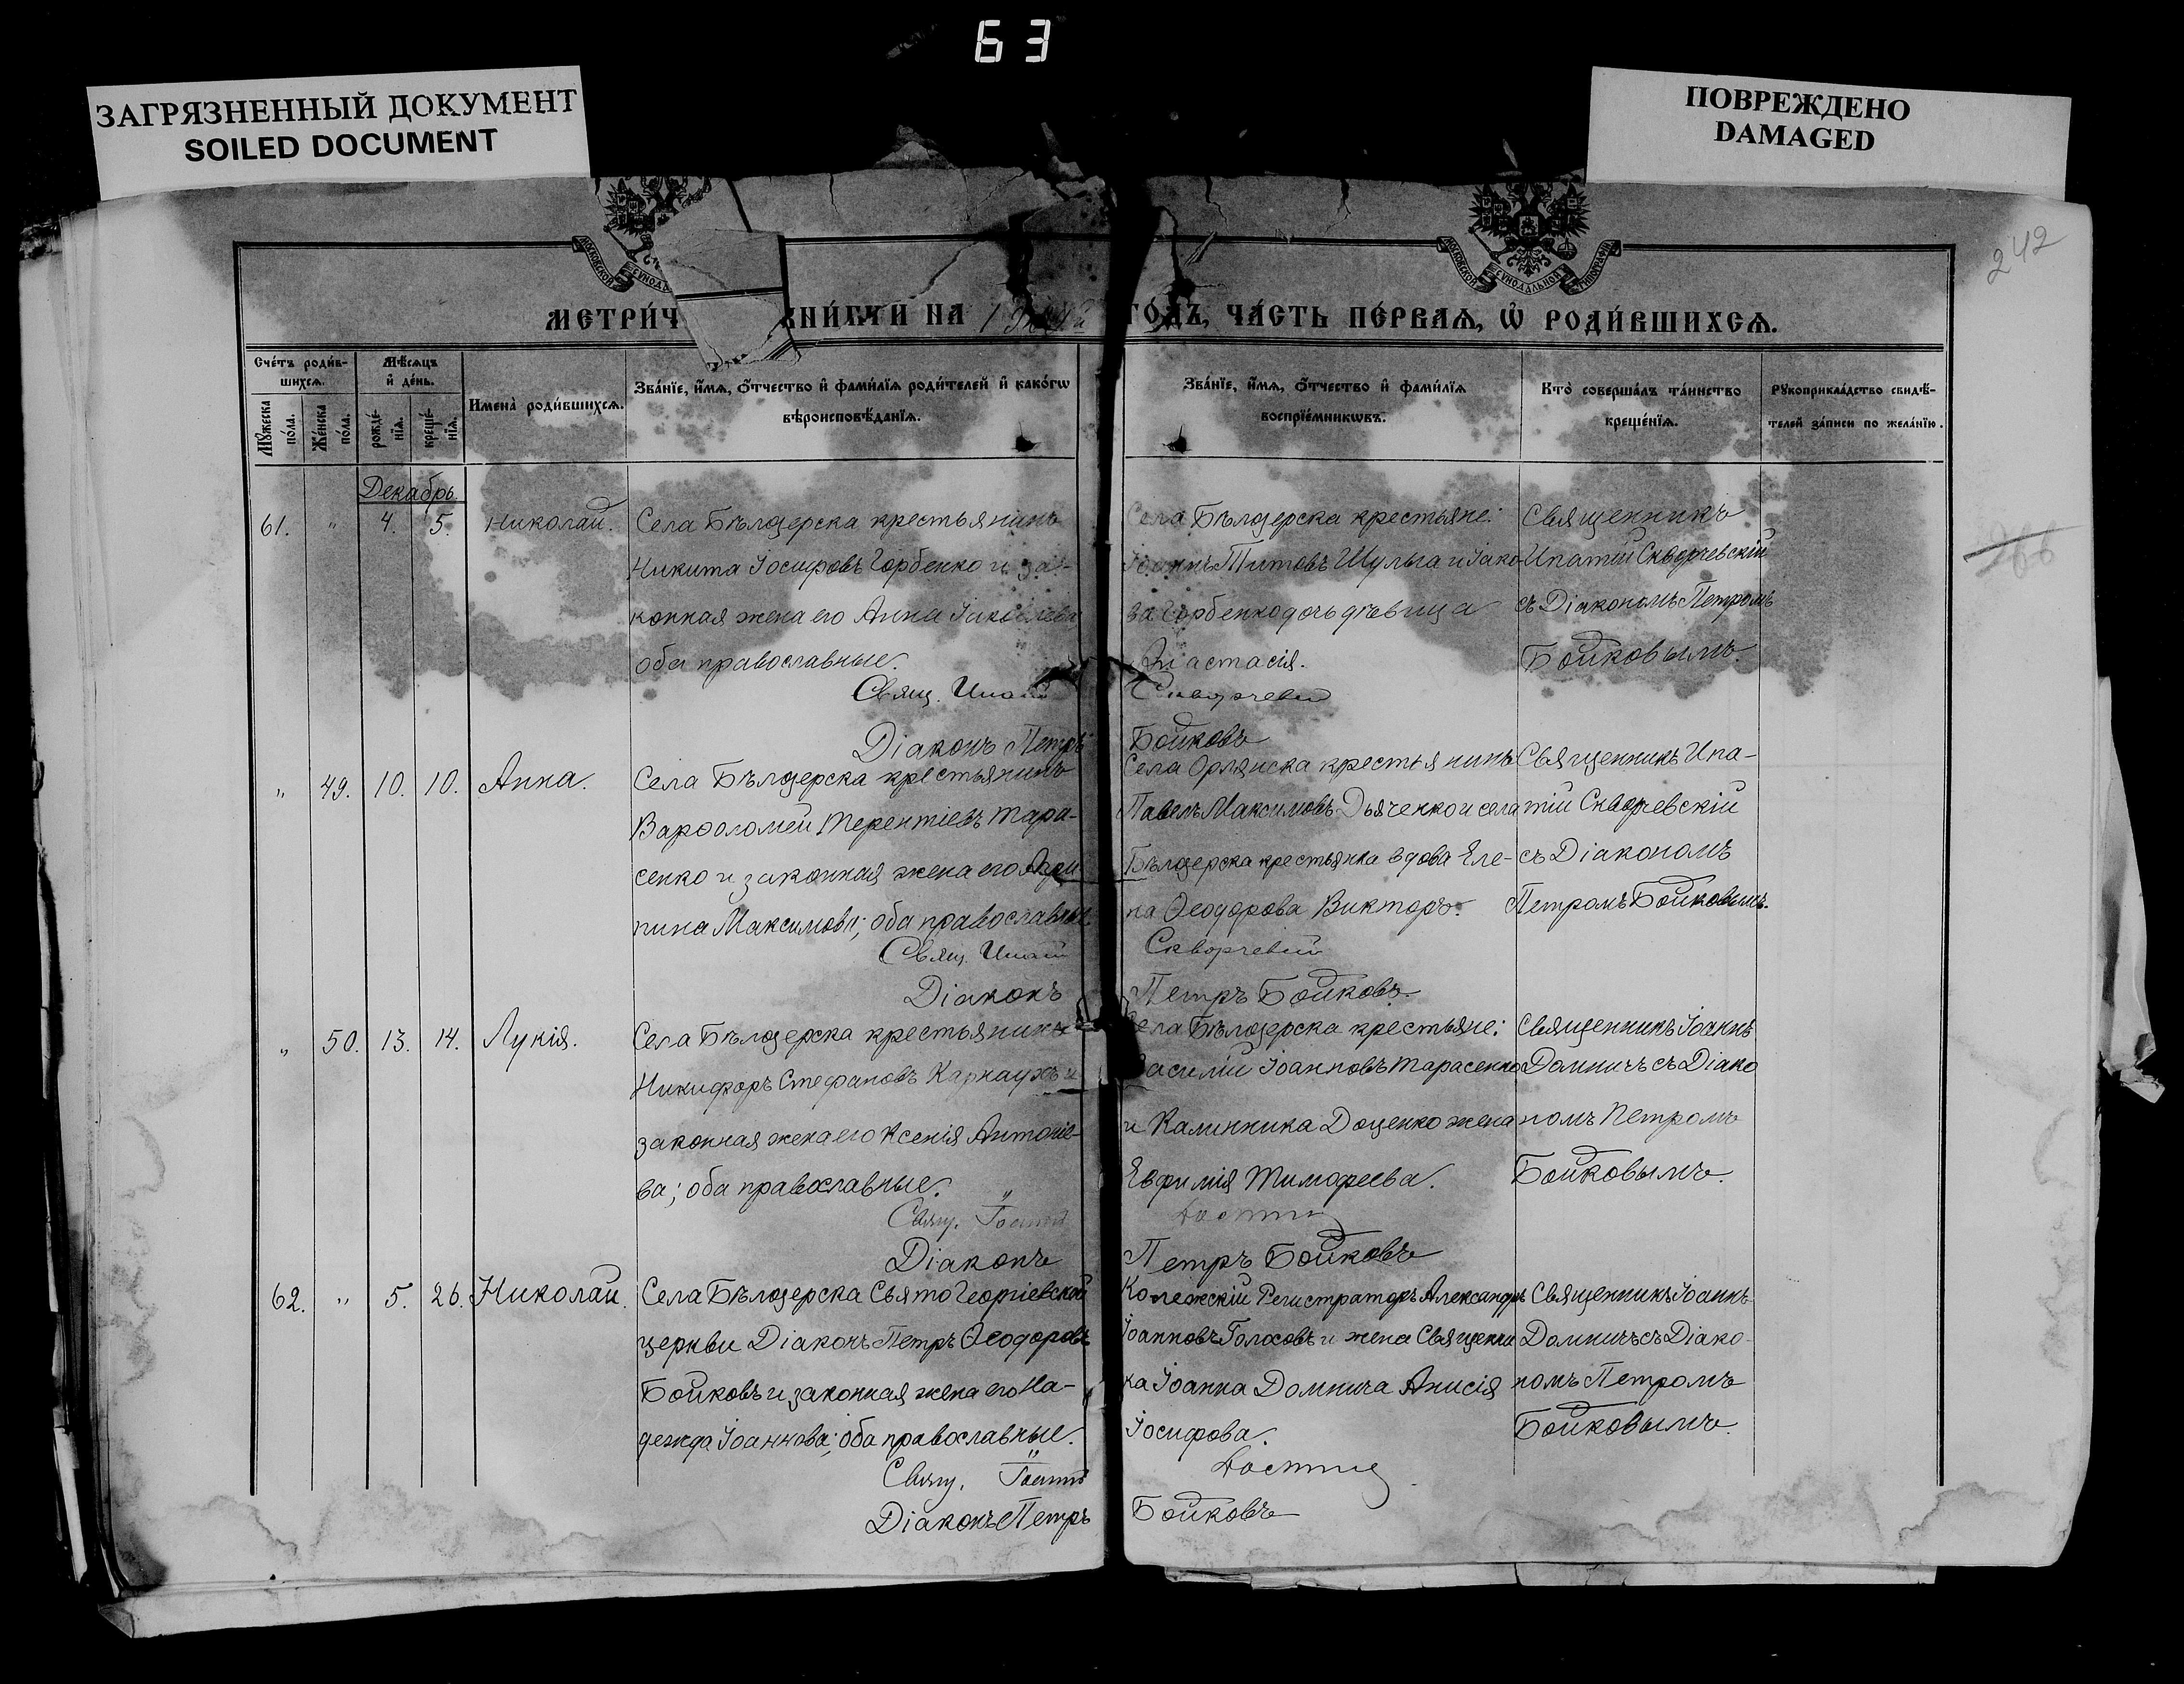 63
ЗАГРЯЗНЕННЫЙ ДОКУМЕНТ
SOILED DOCUMENT
ПОВРЕЖДЕНО
DAMAGED
242
МОСКОВСКОЙ СУНОДА
МОСКОВСКОЙ СУНОДАЛЬНОЙ ТИПОГРАФІИ
МЕТРИ́Ч НИ́ГИ НА ГОДЪ, ЧА́СТЬ ПЕ́РВАЯ, Ѡ҆ РОДИ́ВШИХСЯ.
Сче́тъ роди́в-
шихся.
Му́жеска по́ла.
Же́нска по́ла.
Мѣ́сяцъ
и҆ де́нь.
рожде́-
нїя.
креще́-
нїя.
Имена̀ роди́вшихся.
Зва́нїе, и҆́мя, ѻ҆́тчество и҆ фами́лїя роди́телей и҆ како́гѡ
вѣроисповѣ́данїя.
Зва́нїе, и҆́мя, ѻ҆́тчество и҆ фами́лїя
воспрїе́мникѡвъ.
Кто̀ соверша́лъ та́инство
креще́нїя.
Рукоприкла́дство свидѣ́-
телей за́писи по жела́нїю.
Декабрь.
61. " 4. 5. Николай.
Села Бѣлозерска крестьянинъ
Никита Іосифовъ Горбенко и за-
конная жена его Анна Іаковлева
оба православные.
Свящ. Ипатій
Діаконъ Петръ
Села Бѣлозерска крестьяне:
Іоаннъ Титовъ Шульга и Іако-
ва Горбенко дочь дѣвица
Анастасія.
Скворчевскій
Бойковъ
Священникъ
Ипатій Скворчевскій
съ Діакономъ Петромъ
Бойковымъ.
" 49. 10. 10. Анна.
Села Бѣлозерска крестьянинъ
Варфоломей Терентіевъ Тара-
сенко и законная жена его Агри-
пина Максимова; оба православные.
Свящ. Ипатій
Діаконъ
Села Орлянска крестьянинъ
Павелъ Максимовъ Дьяченко и села
Бѣлозерска крестьянка вдова Еле-
на Ѳеодорова Викторъ.
Скворчевскій
Петръ Бойковъ.
Священникъ Ипа-
тій Скворчевскій
съ Діакономъ
Петромъ Бойковымъ.
" 50. 13. 14. Лукія.
Села Бѣлозерска крестьянинъ
Никифоръ Стефановъ Карнаухъ и
законная жена его Ксенія Антоніе-
ва; оба православные.
Свящ. Іоаннъ
Діаконъ
Села Бѣлозерска крестьяне:
Василій Іоанновъ Тарасенко
и Калинника Доценко жена
Евфимія Тимофеева.
Петръ Бойковъ
Священникъ Іоаннъ
Домничъ съ Діако
номъ Петромъ
Бойковымъ.
62. " 5. 26. Николай.
Села Бѣлозерска Свято Георгіевской
церкви Діаконъ Петръ Ѳеодоровъ
Бойковъ и законная жена его На-
дежда Іоаннова; оба православные.
Свящ. Іоаннъ
Діаконъ Петръ
Колежскій Регистраторъ Александръ
Іоанновъ Голосовъ и жена Священни
ка Іоанна Домнича Анисія
Іосифова.
Бойковъ
Священникъ Іоаннъ
Домничъ съ Діако-
номъ Петромъ
Бойковымъ.